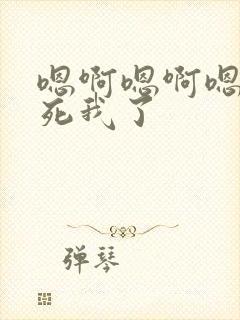 嗯啊嗯啊嗯
死我了
弹琴